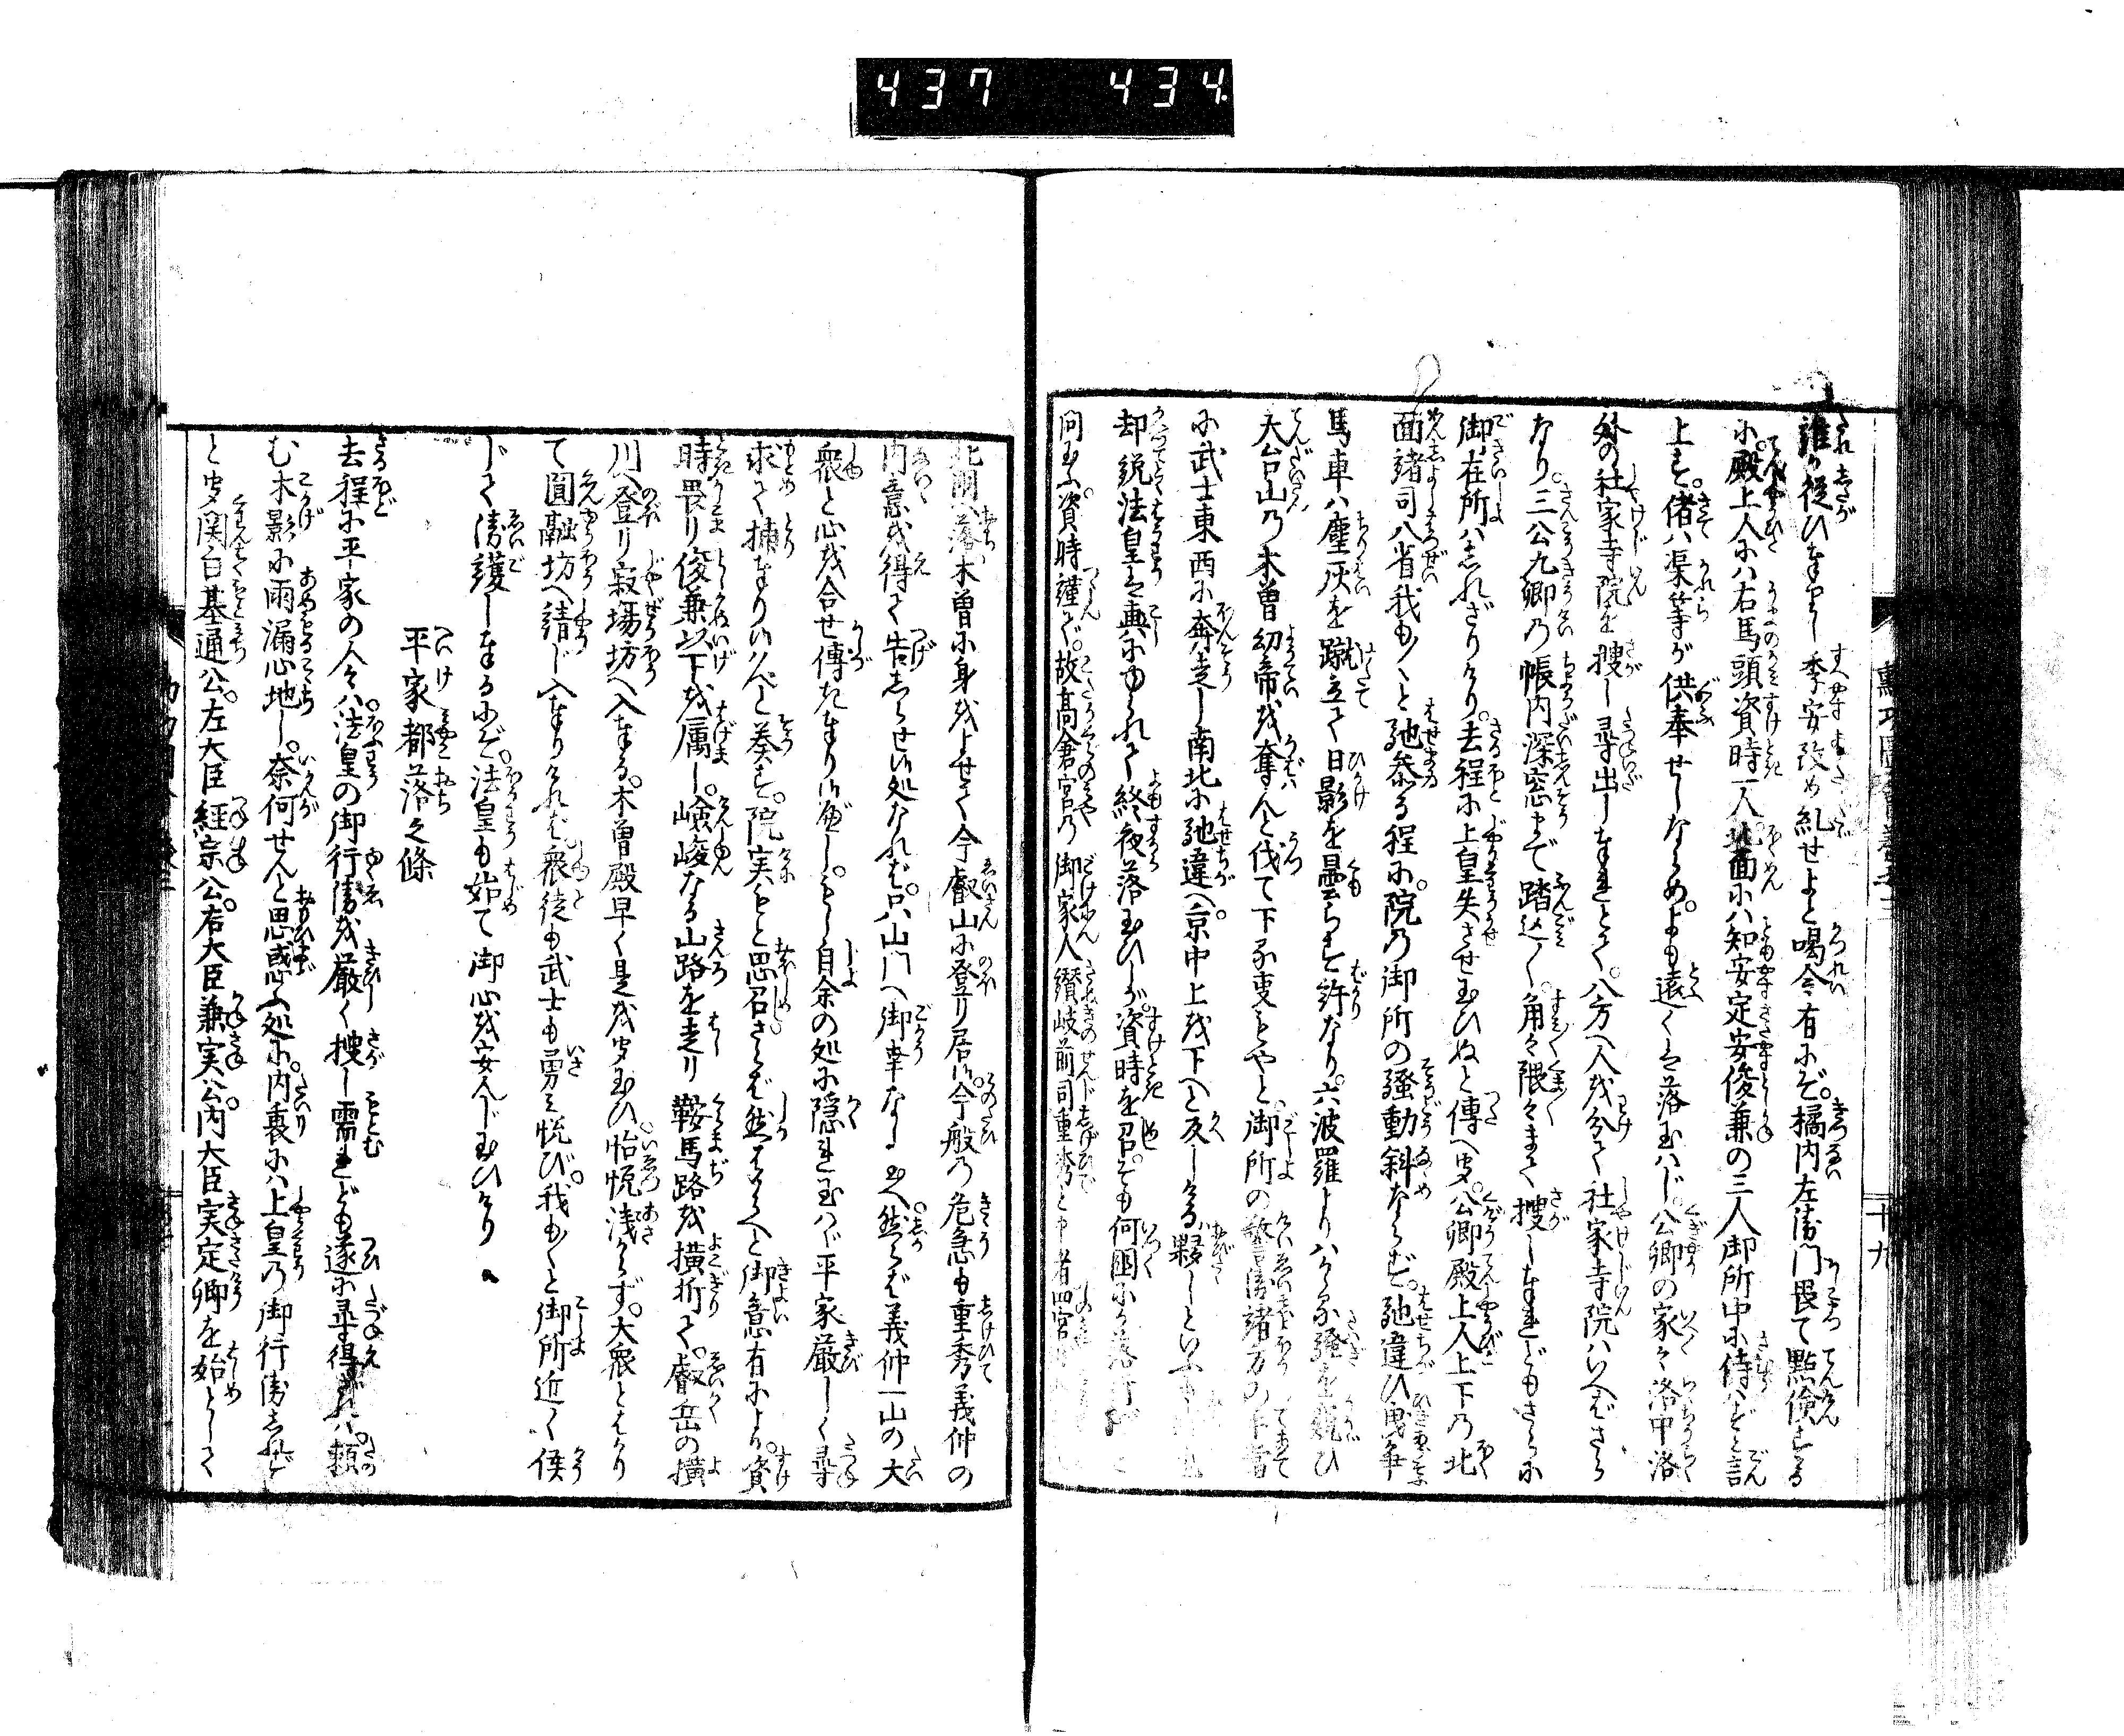 437 434
誰か従ひ奉りし季安改め乱せよと喝令有にぞ。橘内左衛門畏て點倹する
に。殿上人には右馬頭資時一人。北面には知安定安俊兼の三人御所中に侍はずと言
上す。偖は渠等が供奉せしならめ。よも遠くは落玉はじ。公卿の家々洛中洛
外の社家寺院を捜し尋出し奉れとて。八方へ人を分て社家寺院はいへばさら
なり。三公九卿の帳内深窓まで踏込〳〵。角々隈々まで捜し奉れどもさらに
御在所はしれざりけり。去程に上皇失させ玉ひぬと傳へ聞。公卿殿上人上下の北
面諸司八省我も〳〵と馳参る程に。院の御所の騒動斜ならず。馳違ひ曳争
馬車は塵灰を蹴立て日影を曇らす許なり。六波羅よりはかゝる騒を窺ひ
天台山の木曽幼帝を奪んと伐て下る事もやと。御所の警衛諸方の下知
に武士東西に奔走し南北に馳違へ。京中上を下へと反しける夥しといふも
却説法皇は輿にめされて終夜落玉ひしが。資時を召ぞも何国にか落行
問玉ふ。資時謹で。故高倉宮の御家人讃岐前司重秀と申者四宮
北国へ落木曽に身をよせて今叡山に登り居候。今般の危急も重秀義仲の
内意を得て告しらせ候処なれば。只山門へ御幸なし玉へ。然らば義仲一山の大
衆と心を合せ傳き奉り候べし。もし自余の処に隠れ玉はゞ平家厳しく尋
求て捕奉り候べしと奏す。院実もと思召さらば然はからへと御意有により。資
時畏り俊兼以下を属し。嶮峻なる山路を走り鞍馬路を横折て。叡岳の横
川へ登り寂場坊へ入奉る。木曽殿早く是を聞玉ひ。怡悦浅からず。大衆とはかり
て圓融坊へ請じ入奉りければ衆徒も武士も勇み悦び。我も〳〵と御所近く候
じて衛護し奉るにぞ。法皇も始て御心を安んじ玉ひけり
平家都落之條
去程に平家の人々は。法皇の御行衛を厳く捜し需れども遂に尋得ざれば。頼
む木影に雨漏心地し。奈何せんと思惑ふ処に。内裏には上皇の御行衛しれず
と聞関白基通公。左大臣経宗公。右大臣兼実公。内大臣実定卿を始として
十九